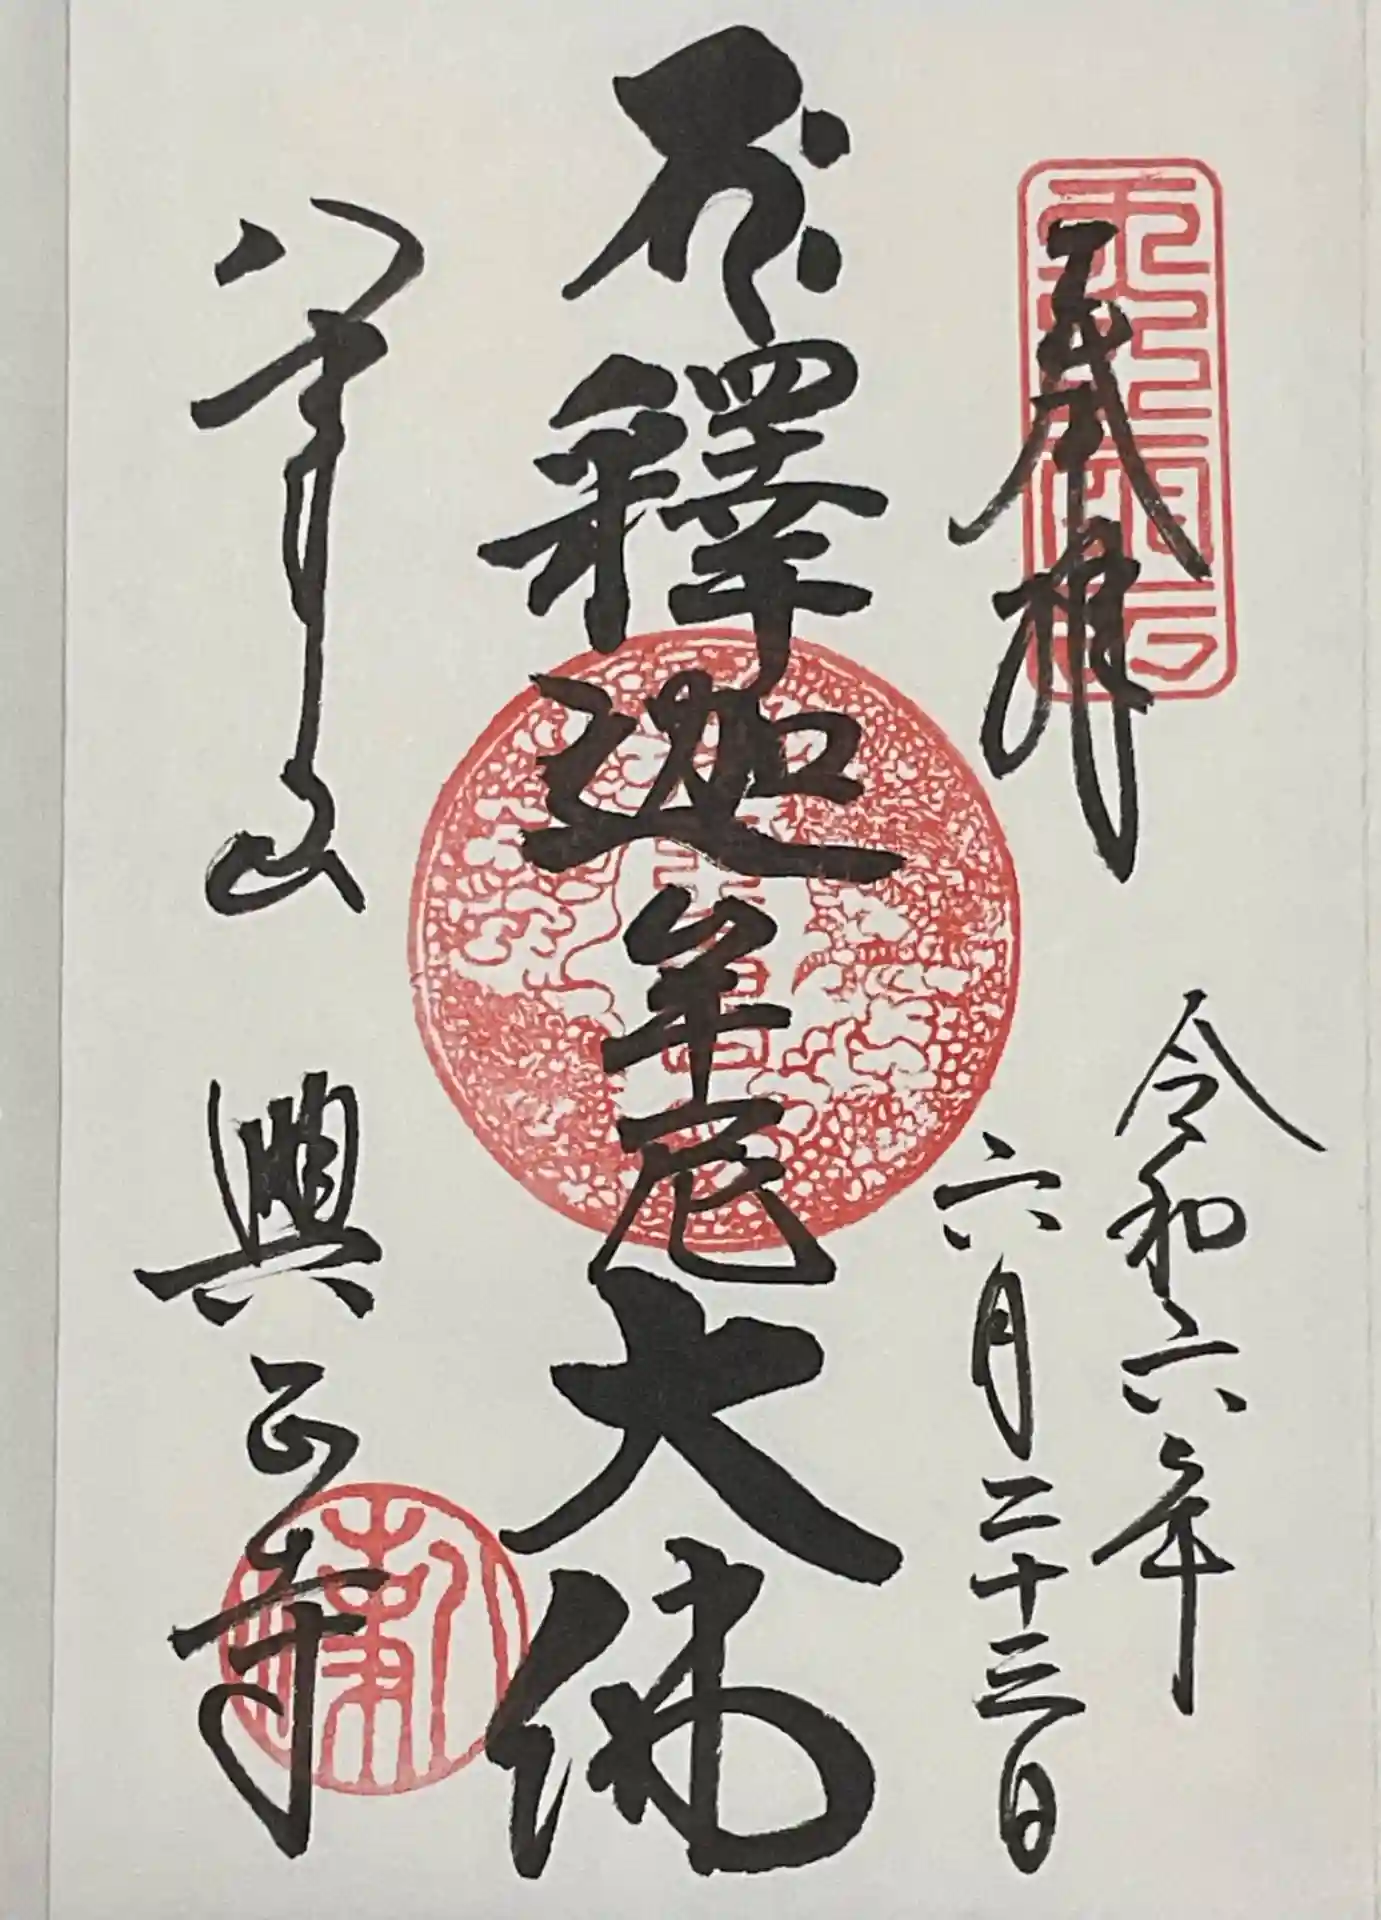 奉拝
令和六年
六月二十三日
釋迦牟尼大佛
八事山 興正寺